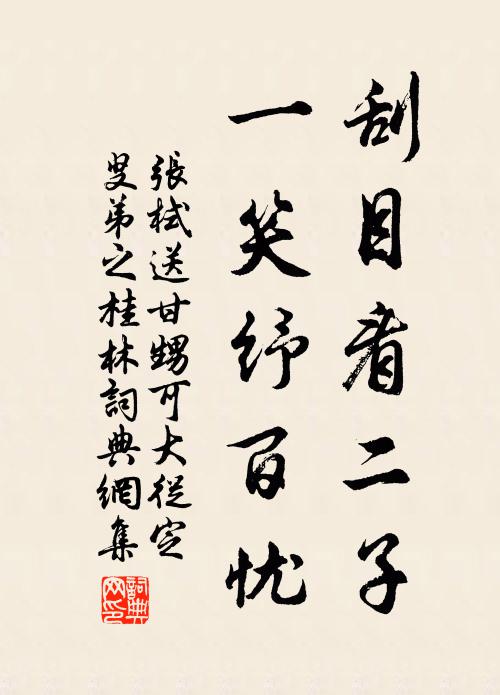 刮目看二子
一笑纾百忧
張栻送甘甥可大從定
叟弟之桂林詞典網集
詞典
网印